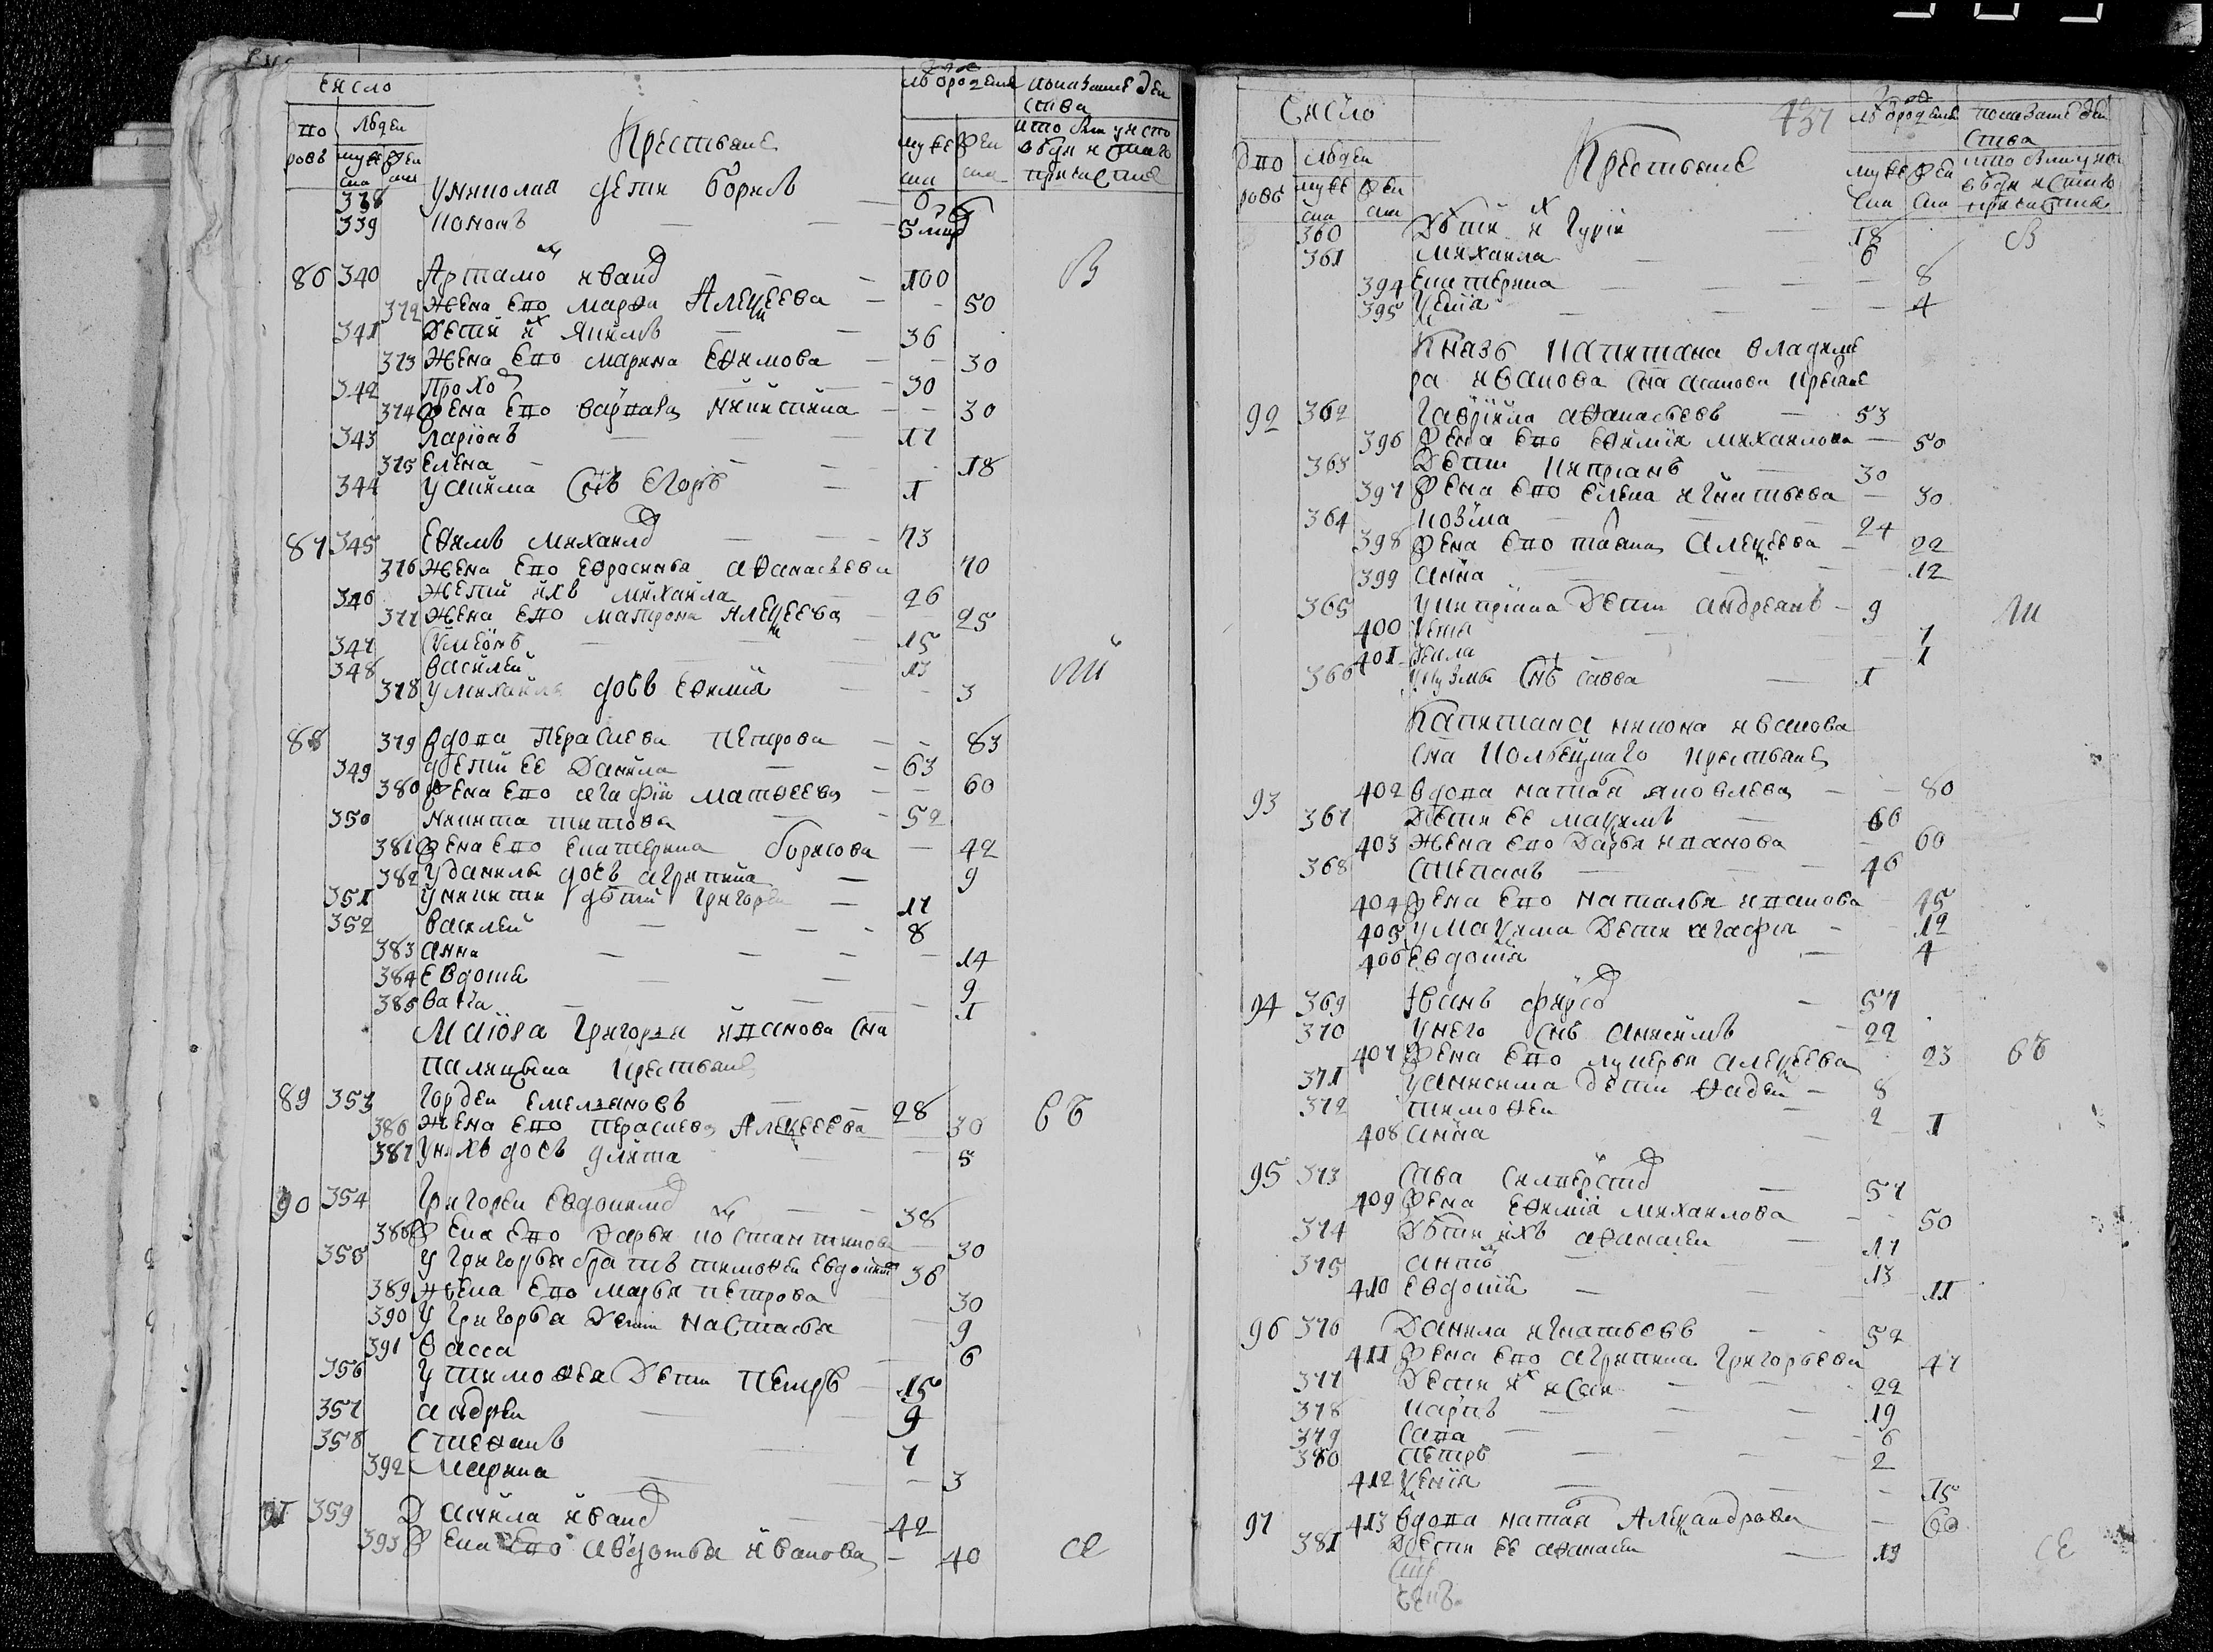 Число
Крестьяне
лѣ от рожде
показание дей
ства
дво
ровъ
людей
муже
ска
жен
ска
муже
ска
жен
ска
кто былъ у испо
вѣди и святаго
причастия
338 У николая дети борисъ — 6
339 кононъ — — 5 мцд
86 340 Артамо иванд — — 100 В
372 жена его марфа Алеѯеева — — 50
341 Дети их якимъ — — 36
373 жена его марина Ефимова — — 30
342 Прохо — — 30
374 жена его варвара никитина — — 30
343 ларионъ — — 17
375 елена — — 18
344 у акима снъ егоръ — 1
87 345 Ефимъ михаилд — — 73
376 жена его ефросинья афанасьева 70
346 Жетии ихъ михаила 26
377 жена его матрона Алеѯеева — 25
347 Симеонъ — — 15
348 василей — — 13 ли
378 у михаила дочь ефимиа — — 3
88 379 вдова Параскева петрова — — 83
349 дѣти ее данила — — 63
380 жена его агафия матфеева — — 60
350 никита титова — — 52
381 жена его екатерина борисова — 42
382 у данилы дочь агрипина — 9
351 у никиты дѣти григорей — 17
352 василей — — — 8
383 анна — — — — 14
384 евдотия — — 9
385 васса — — — 1
Маиора григорья иванова сна
палицына крестьяне
89 353 гордей емельяновъ — — 28
386 жена его параскева Алеѯеева — 30 бб
387 у нихъ дочь улита — — 5
90 354 григорей Евдокимд — — 38
388 жена его дарья костантинова — 30
355 у григорья братъ тимофей Евдоким 36
389 жена его марья петрова — 30
390 у григорья дети настасья — 9
391 васса — 6
356 у тимофея дети петръ — 15
357 андрей — — 9
358 стефанъ — 7
392 марина — — 3
91 359 данила иванд — 42
393 жена его авдотья иванова — 40 а
437
Число
Крестьяне
лѣ от рожде
показание дей
ства
дво
ровъ
людей
муже
ска
жен
ска
муже
ска
жен
ска
кто былъ у испо
вѣди и святаго
причастия
360 дѣти их гурій — 18 В
361 михаила — — 6
394 екатерина — — — — 8
395 ѯения — — — — 4
Князь капитана владиме
ра иванова сна крстьяне
92 362 гаврила афанасьевъ — 53
396 жена его ефимия михаилова — 50
363 дѣти киприанъ — 30
397 жена его елена игнатьева — 30
364 козма — — — 24
398 жена его татьяна Алеѯеева — 22
399 анна — — — — 12
365 у киприана дети андреанъ — 9 ли
400 ѯения — — 7
401 фекла — — 1
366 у кузмы снъ савва — 1
Капитана никона иванова
сна кольецкаго крестьяне
93 402 вдова наталя яковлева — — 80
367 дѣти ее маѯимъ — 60
403 жена его дарья иванова — 60
368 степанъ — — — 46
404 жена его наталья иванова 45
405 у маѯима дети агафия — — 12
406 евдотия — 4
94 369 иванъ фирсд — 57
370 у него снъ анисимъ — 22
407 жена его лукерья алеѯеева 23 бб
371 у анисима дети фадей — 8
372 тимофей — 2
408 анна — 1
95 373 сава силверстд — 57
409 жена ефимия михаилова — — 50
374 дѣти ихъ афанасей — 17
375 анто — 13
410 евдотия — — — 11
96 376 данила игнатьевъ — — 52
411 жена его агрипина григорьева 47
377 дети их исаи — — 22
378 карпъ — — — 19
379 сава — — — 6
380 петръ — — — 2
412 ѯения — — — — 15
97 413 вдова наталя Алеѯандрова — 60
381 дѣти ее афанасей — 19 се